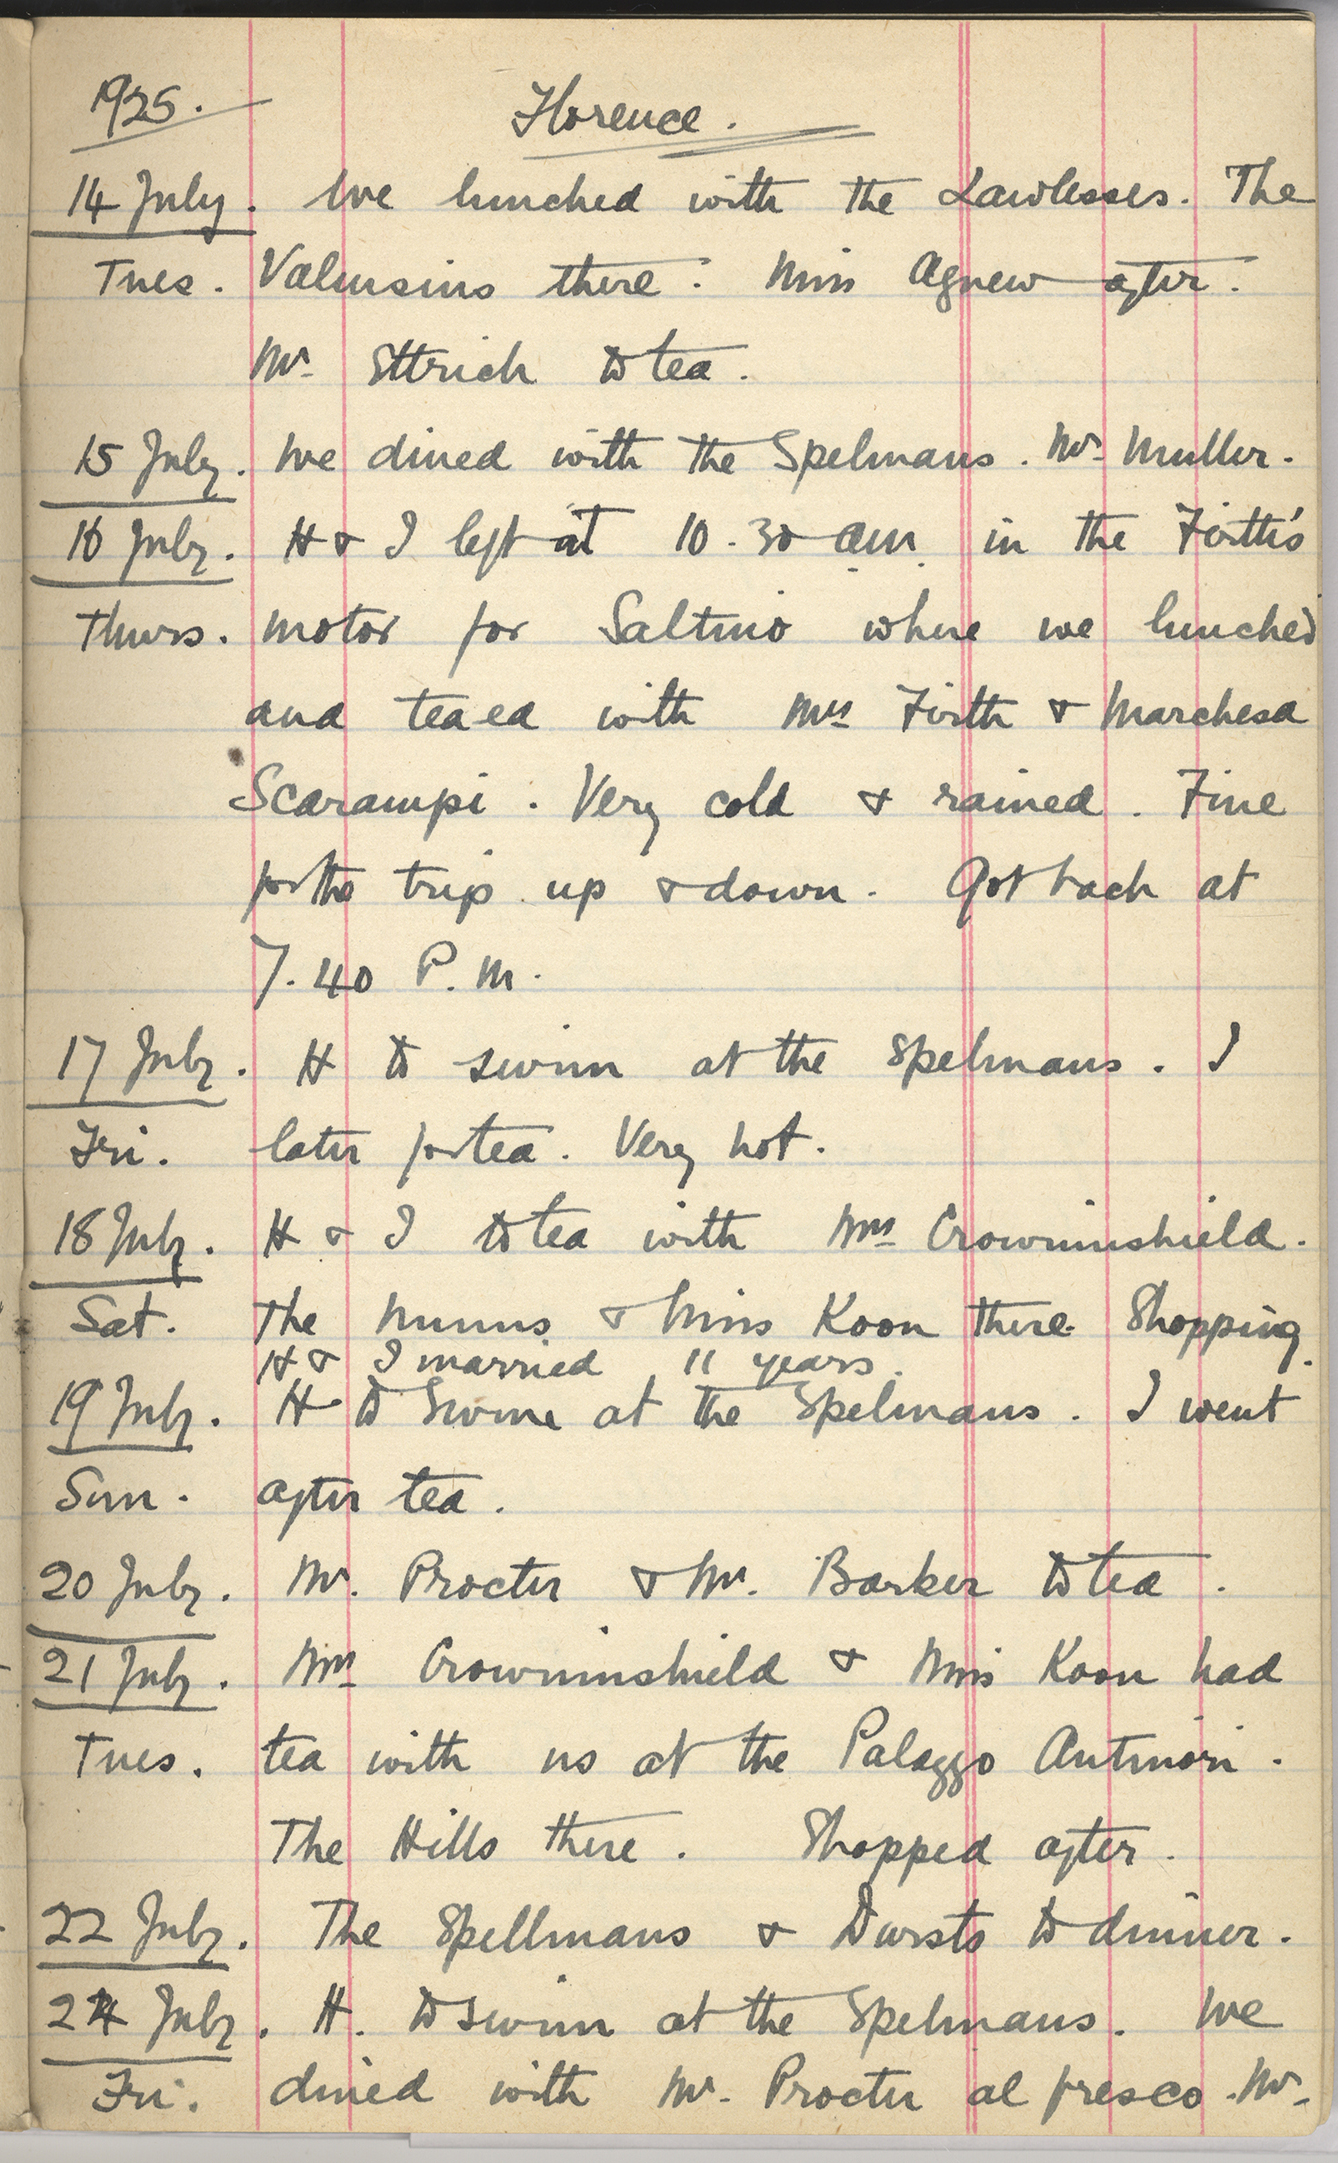 1925. Florence.
14 July. We lunched with the Lawlesses. The
Tues. Valensins there. Miss Agnew after.
Mr. Ettrich to tea.
15 July. We dined with the Spelmans. Mr. Muller.
16 July. H & I left at 10.30 a.m. in the Firth's
Thurs. motor for Saltino where we lunched
and tea-ed with Mrs Firth & Marchesa
Scarampi. Very cold & rained. Fine
for the trip up & down. Got back at
7.40 P.M.
17 July. H to swim at the Spelmans. I
Fri. later for tea. Very hot.
18 July. H & I to tea with Mrs Crowninshield.
Sat. The Nunns & Miss Koon there. Shopping.
H & I married 11 years.
19 July. H to swim at the Spelmans. I went
Sun. after tea.
20 July. Mr. Procter & Mr. Barker to tea.
21 July. Mrs Crowninshield & Miss Koon had
Tues. tea with us at the Palazzo Antinori.
The Hills there. Shopped after.
22 July. The Spellmans & Dursts to dinner.
24 July. H. to swim at the Spelmans. We
Fri. dined with Mr. Procter al fresco. Mr.